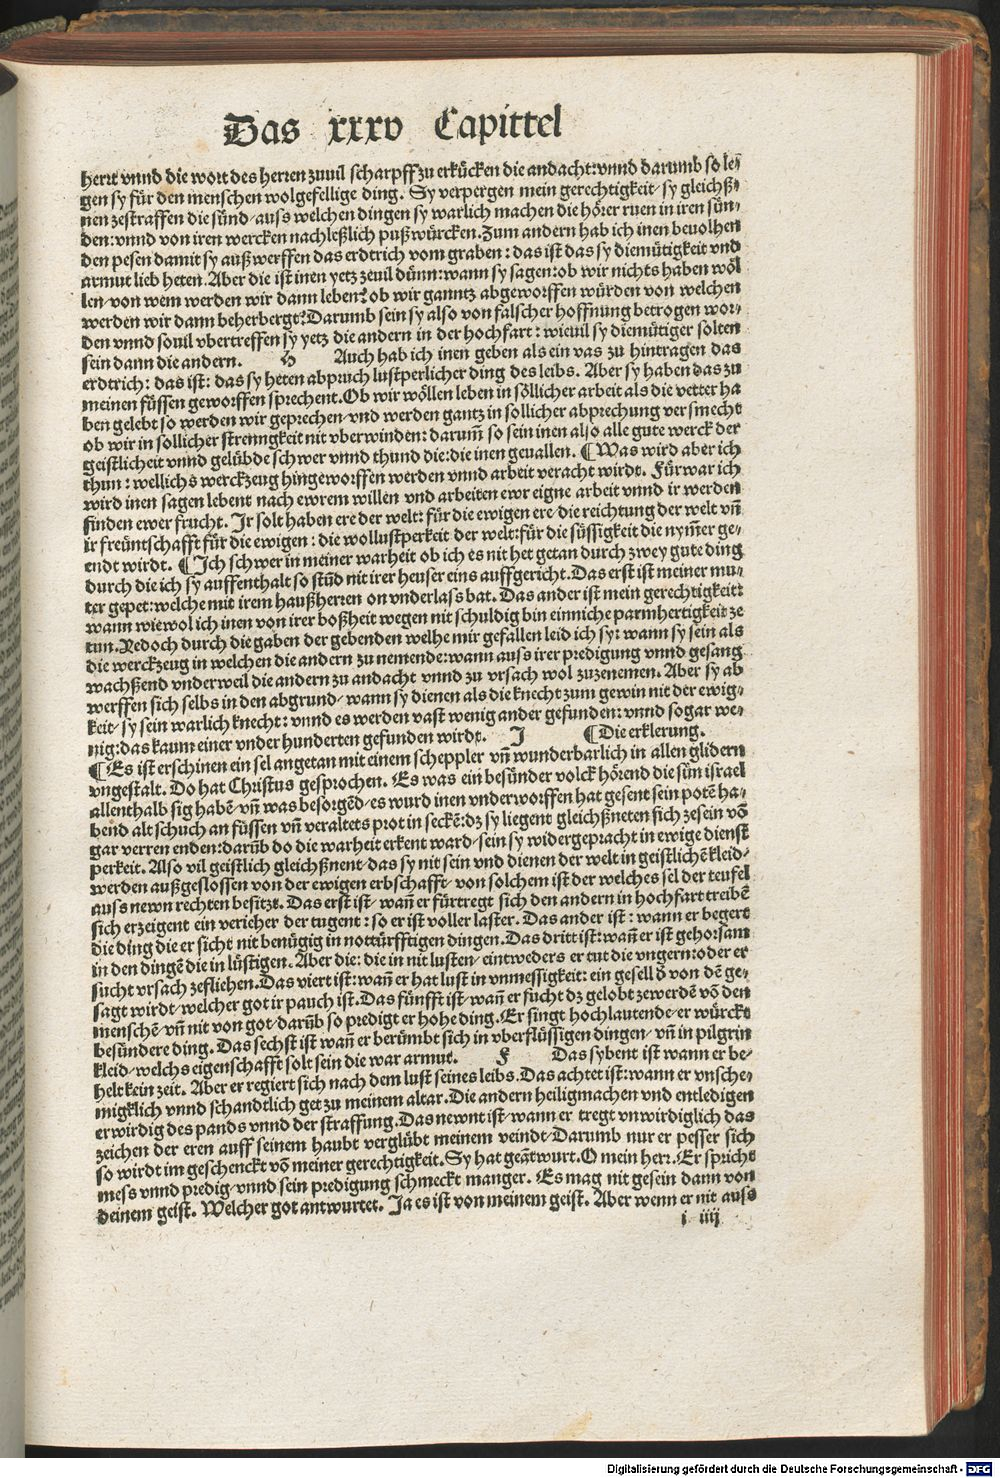 Das xxxv Capittel
herrt vnnd die wort des herren zuuil scharpff zu erkücken die andacht: vnnd darumb so le⸗
gen sy für den menschen wolgefellige ding. Sy verpergen mein gerechtigkeit/ sy gleichß⸗
nen zestraffen die sünd/ auss welchen dingen sy warlich machen die hörer ruen in iren sün⸗
den: vnnd von iren wercken nachleßlich puß würcken. Zum andern hab ich inen beuolhen
den pesen damit sy außwerffen das erdtrich vom graben: das ist das sy diemütigkeit vnd
armut lieb heten. Aber die ist inen yetz zeuil dünn: wann sy sagen: ob wir nichts haben wöl
len/ von wem werden wir dann leben? ob wir ganntz abgeworffen würden von welchen
werden wir dann beherbergt? Darumb sein sy also von falscher hoffnung betrogen wor⸗
den vnnd souil vbertreffen sy yetz die andern in der hochfart: wieuil sy diemütiger solten
sein dann die andern. H Auch hab ich inen geben als ein vas zu hintragen das
erdtrich: das ist: das sy heten abpruch lustperlicher ding des leibs. Aber sy haben das zu
meinen füssen geworffen sprechent. Ob wir wöllen leben in söllicher arbeit als die vetter ha
ben gelebt so werden wir geprechen/ vnd werden gantz in sollicher abprechung versmecht
ob wir in sollicher strenngkeit nit vberwinden: darum̃ so sein inen also alle gute werck der
geistlicheit vnnd gelübde schwer vnnd thund die: die inen geuallen. ¶ Was wird aber ich
thun: wellichs werckzeug hingeworffen werden vnnd arbeit veracht wirdt. Fürwar ich
wird inen sagen lebent nach ewrem willen vnd arbeiten ewr eigne arbeit vnnd ir werden
finden ewer frucht. Jr solt haben ere der welt: für die ewigen ere/ die reichtung der welt vñ
ir freüntschafft für die ewigen: die wollustperkeit der welt: für die süssigkeit die nym̃er ge⸗
endt wirdt. ¶ Jch schwer in meiner warheit ob ich es nit het getan durch zwey gute ding
durch die ich sy auffenthalt so stũd nit irer heuser eins auffgericht. Das erst ist meiner mu⸗
ter gepet: welche mit irem haußherren on vnderlass bat. Das ander ist mein gerechtigkeit:
wann wiewol ich inen von irer boßheit wegen nit schuldig bin einniche parmhertigkeit ze
tun. Yedoch durch die gaben der gebenden welhe mir gefallen leid ich sy: wann sy sein als
die werckzeug in welchen die andern zu nemende: wann auss irer predigung vnnd gesang
wachßend vnderweil die andern zu andacht vnnd zu vrsach wol zuzenemen. Aber sy ab
werffen sich selbs in den abgrund/ wann sy dienen als die knecht zum gewin nit der ewig⸗
keit/ sy sein warlich knecht: vnnd es werden vast wenig ander gefunden: vnnd sogar we⸗
nig: das kaum einer vnder hunderten gefunden wirdt. J ¶ Die erklerung.
¶ Es ist erschinen ein sel angetan mit einem scheppler vñ wunderbarlich in allen glidern
vngestalt. Do hat Christus gesprochen. Es was ein besünder volck hörend die sün israel
allenthalb sig habẽ/ vñ was besorgẽd/ es wurd inen vnderworffen hat gesent sein potẽ ha⸗
bend alt schuch an füssen vñ veraltets prot in seckẽ: dz sy liegent gleichßneten sich zesein võ
gar verren enden: darũb do die warheit erkent ward/ sein sy widergepracht in ewige dienst
perkeit. Also vil geistlich gleichßnent/ das sy nit sein vnd dienen der welt in geistlichẽ kleid/
werden außgeslossen von der ewigen erbschafft/ von solchem ist der welches sel der teufel
auss newn rechten besitzt. Das erst ist/ wañ er fürtregt sich den andern in hochfart treibẽ
sich erzeigent ein vericher der tugent: so er ist voller laster. Das ander ist: wann er begert
die ding die er sicht nit benügig in nottürfftigen dingen. Das dritt ist: wañ er ist gehorsam
in den dingẽ die in lüstigen. Aber die: die in nit lusten/ eintweders er tut die vngern: oder er
sucht vrsach zefliehen. Das viert ist: wañ er hat lust in vnmessigkeit: ein gesell ð von dẽ ge⸗
sagt wirdt/ welcher got ir pauch ist. Das fünfft ist/ wañ er sucht dz gelobt zewerdẽ võ den
menschẽ/ vñ nit von got/ darũb so predigt er hohe ding. Er singt hochlautende/ er würckt
besündere ding. Das sechst ist wañ er berümbt sich in vberflüssigen dingen/ vñ in pilgrin
kleid/ welchs eigenschafft solt sein die war armut. K Das sybent ist wann er be⸗
helt kein zeit. Aber er regiert sich nach dem lust seines leibs. Das achtet ist: wann er vnsche⸗
migklich vnnd schandtlich get zu meinem altar. Die andern heiligmachen vnd entledigen
er wirdig des pands vnnd der straffung. Das newnt ist/ wann er tregt vnwirdiglich das
zeichen der eren auff seinem haubt verglübt meinem veindt/ Darumb nur er pesser sich
so wirdt im geschenckt võ meiner gerechtigkeit. Sy hat geãtwurt. O mein herr. Er spricht
mess vnnd predig/ vnnd sein predigung schmeckt manger. Es mag nit gesein dann von
deinem geist. Welcher got antwurtet. Ja es ist von meinem geist. Aber wenn er nit auss
i iiij
Digitalisierung gefördert durch die Deutsche Forschungsgemeinschaft - DFG